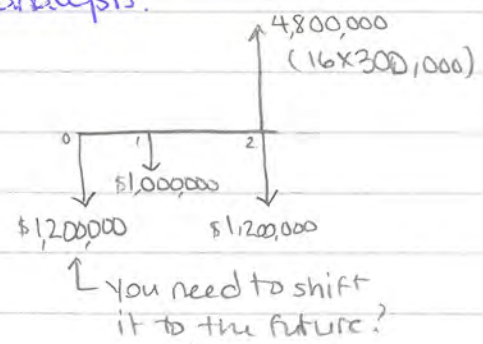 analysis.
4,800,000
(16x300,000)
0 1 2
$1,000,000
$1,200,000 $1,200,000
you need to shift
it to the future?